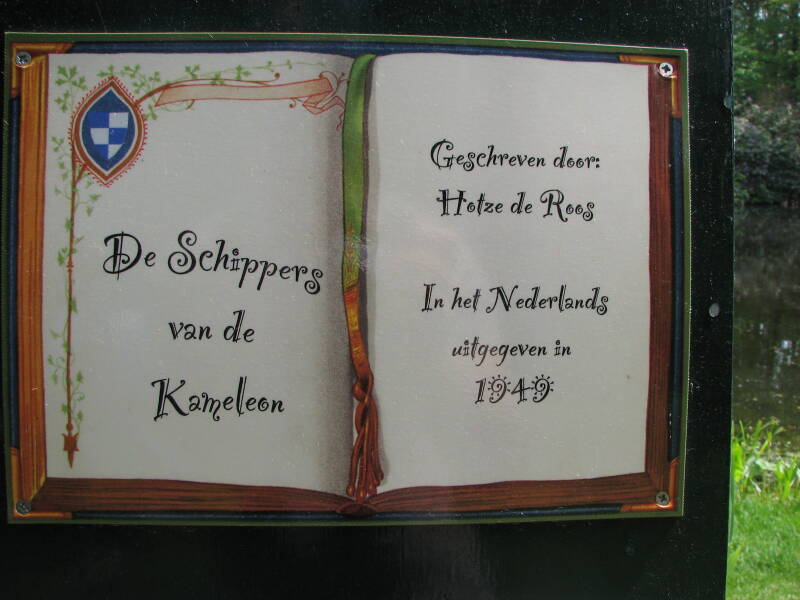 De Schippers
van de
Kameleon
Geschreven door:
Hotze de Roos
In het Nederlands
uitgegeven in
1949